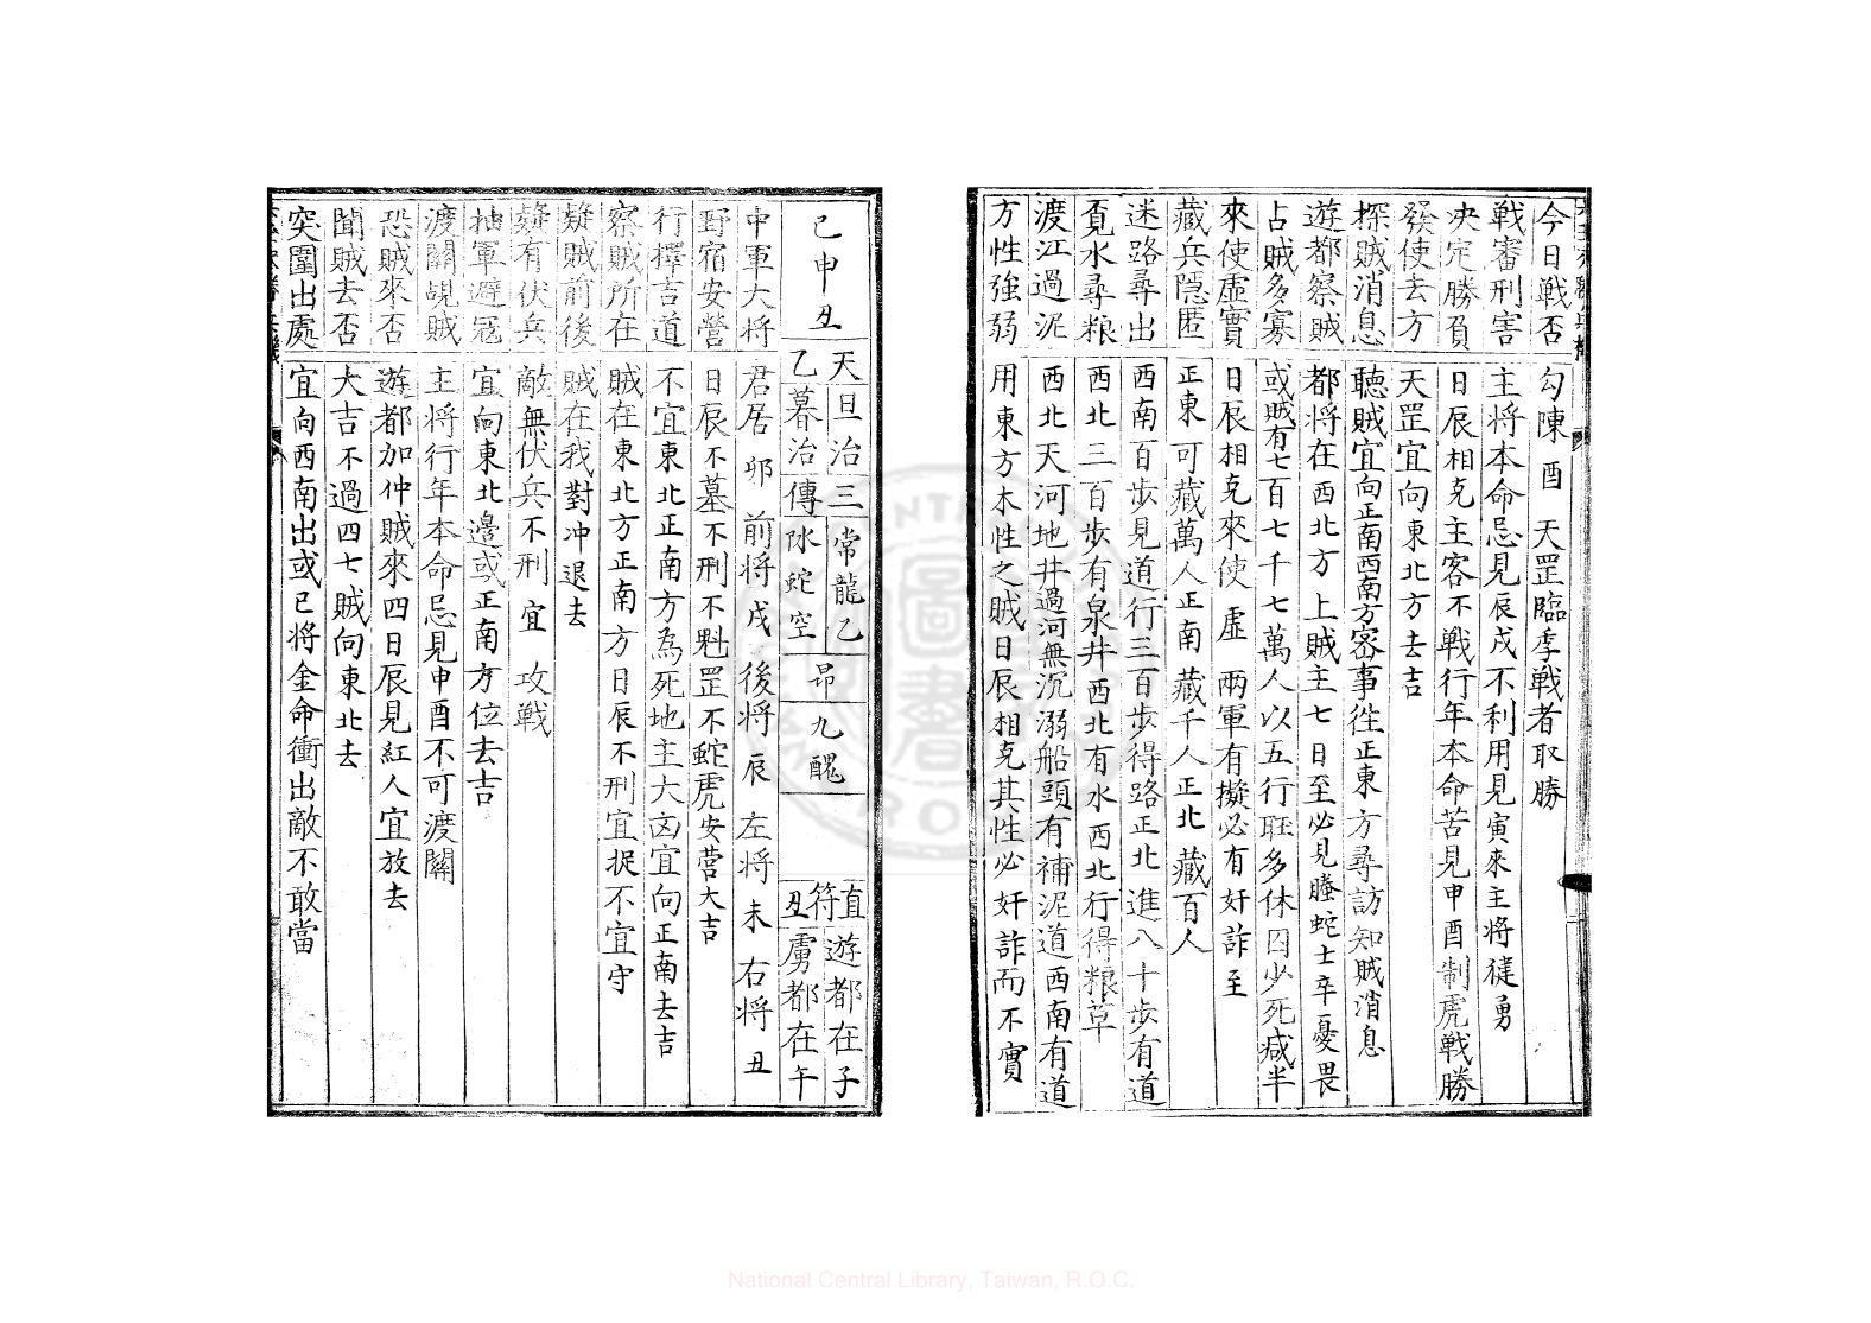 今日戰否 勾陳酉 天罡臨季戰者取勝
戰審刑害 主將本命忌見辰戍不利用見寅來主將徤勇
决定勝負 日辰相克主客不戰行年本命苦見申酉制虎戰勝
發使去方 天罡宜向東北方去吉
探賊消息 聽賊宜向正南西南方密事徃正東方尋訪知賊消息
遊都察賊 都將在西北方上賊主七日至必見螣蛇士卒憂畏
占賊多寡 或賊有七百七千七萬人以五行旺多休囚少死减半
來使虛實 日辰相克來使虛 兩軍有擬必有奸詐至
藏兵隱匿 正東可藏萬人正南藏千人正北藏百人
迷路尋出 西南百步見道行三百步得路正北進八十步有道
覔水尋粮 西北三百步有泉井西北有水西北行得粮草
渡江過泥 西北天河地井過河無沉溺船頭有補泥道西南有道
方性強弱 用東方木性之賊日辰相克其性必奸詐而不實
己申丑
天旦治三 常龍乙
乙暮治傳 蛇空
昴
九醜
直符丑
遊都在子
虜都在午
中軍大将 君居卯 前将戍 後将辰 左将未 右将丑
野宿安營 日辰不墓不刑不魁罡不蛇虎安营大吉
行擇吉道 不宜東北正南方為死地主大凶宜向正南去吉
察賊所在 賊在東北方正南方日辰不刑宜捉不宜守
疑賊前後 賊在我對冲退去
疑有伏兵 敵無伏兵不刑宜攻戰
抽軍避冦 宜向東北邉或正南方位去吉
渡關覘賊 主将行年本命忌見申酉不可渡關
恐賊來否 遊都加仲賊來四日辰見紅人宜放去
聞賊去否 大吉不過四七賊向東北去
突圍出處 宜向西南出或已将金命衝出敵不敢當
National Central Library, Taiwan, R.O.C.